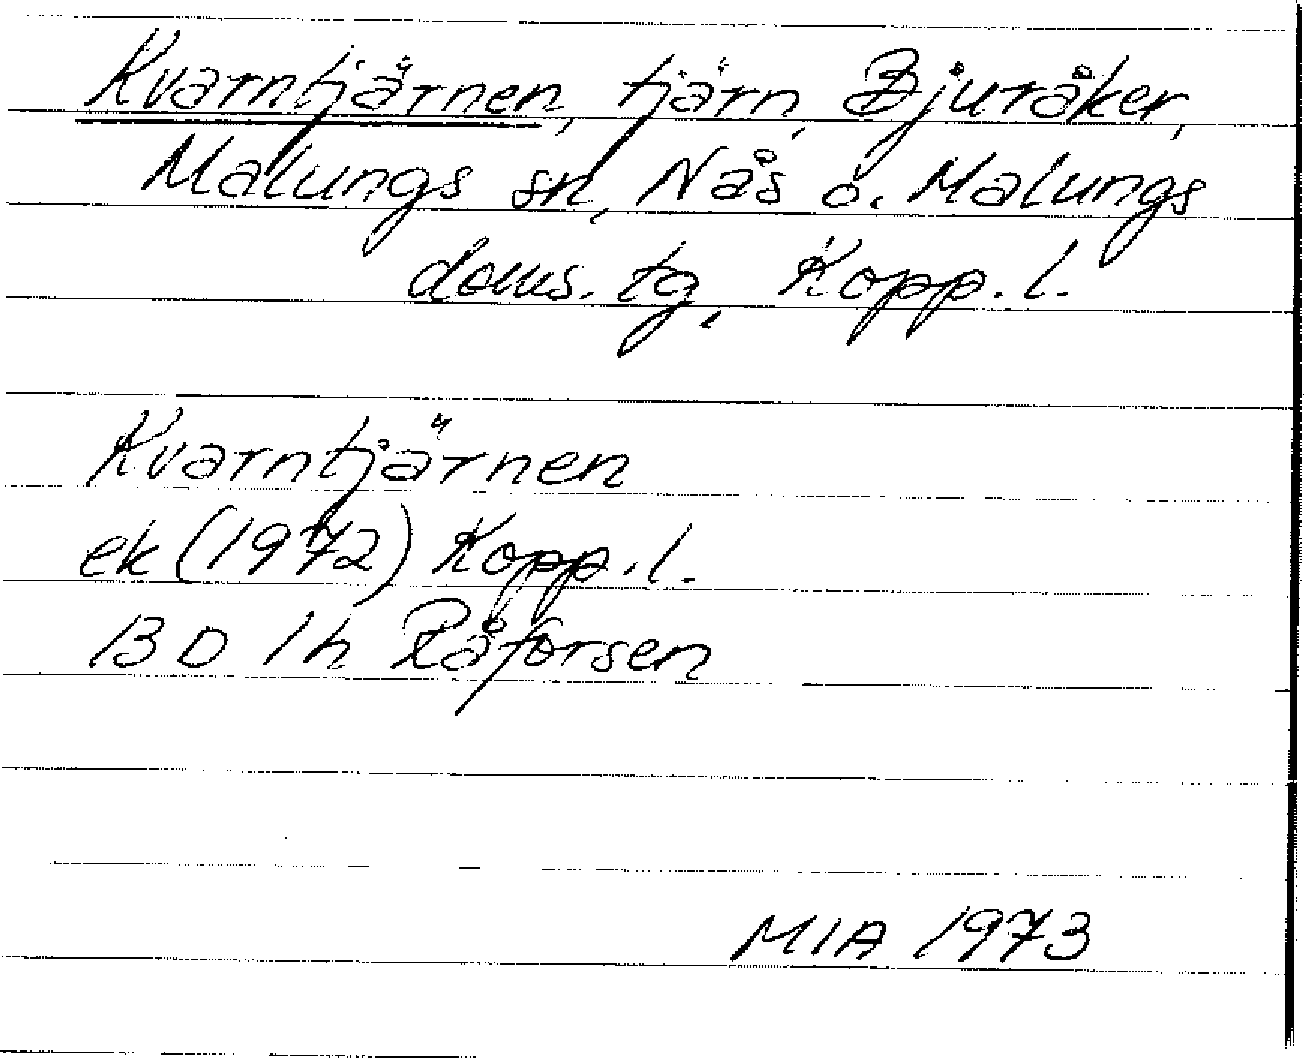 Kvarntjärnen, tjärn, Bjuråker,
Malungs sn, Nås o. Malungs
doms. tg, Kopp. l.
Kvarntjärnen
ek (1972) Kopp. l.
13 D 1h Råforsen
MIA 1973